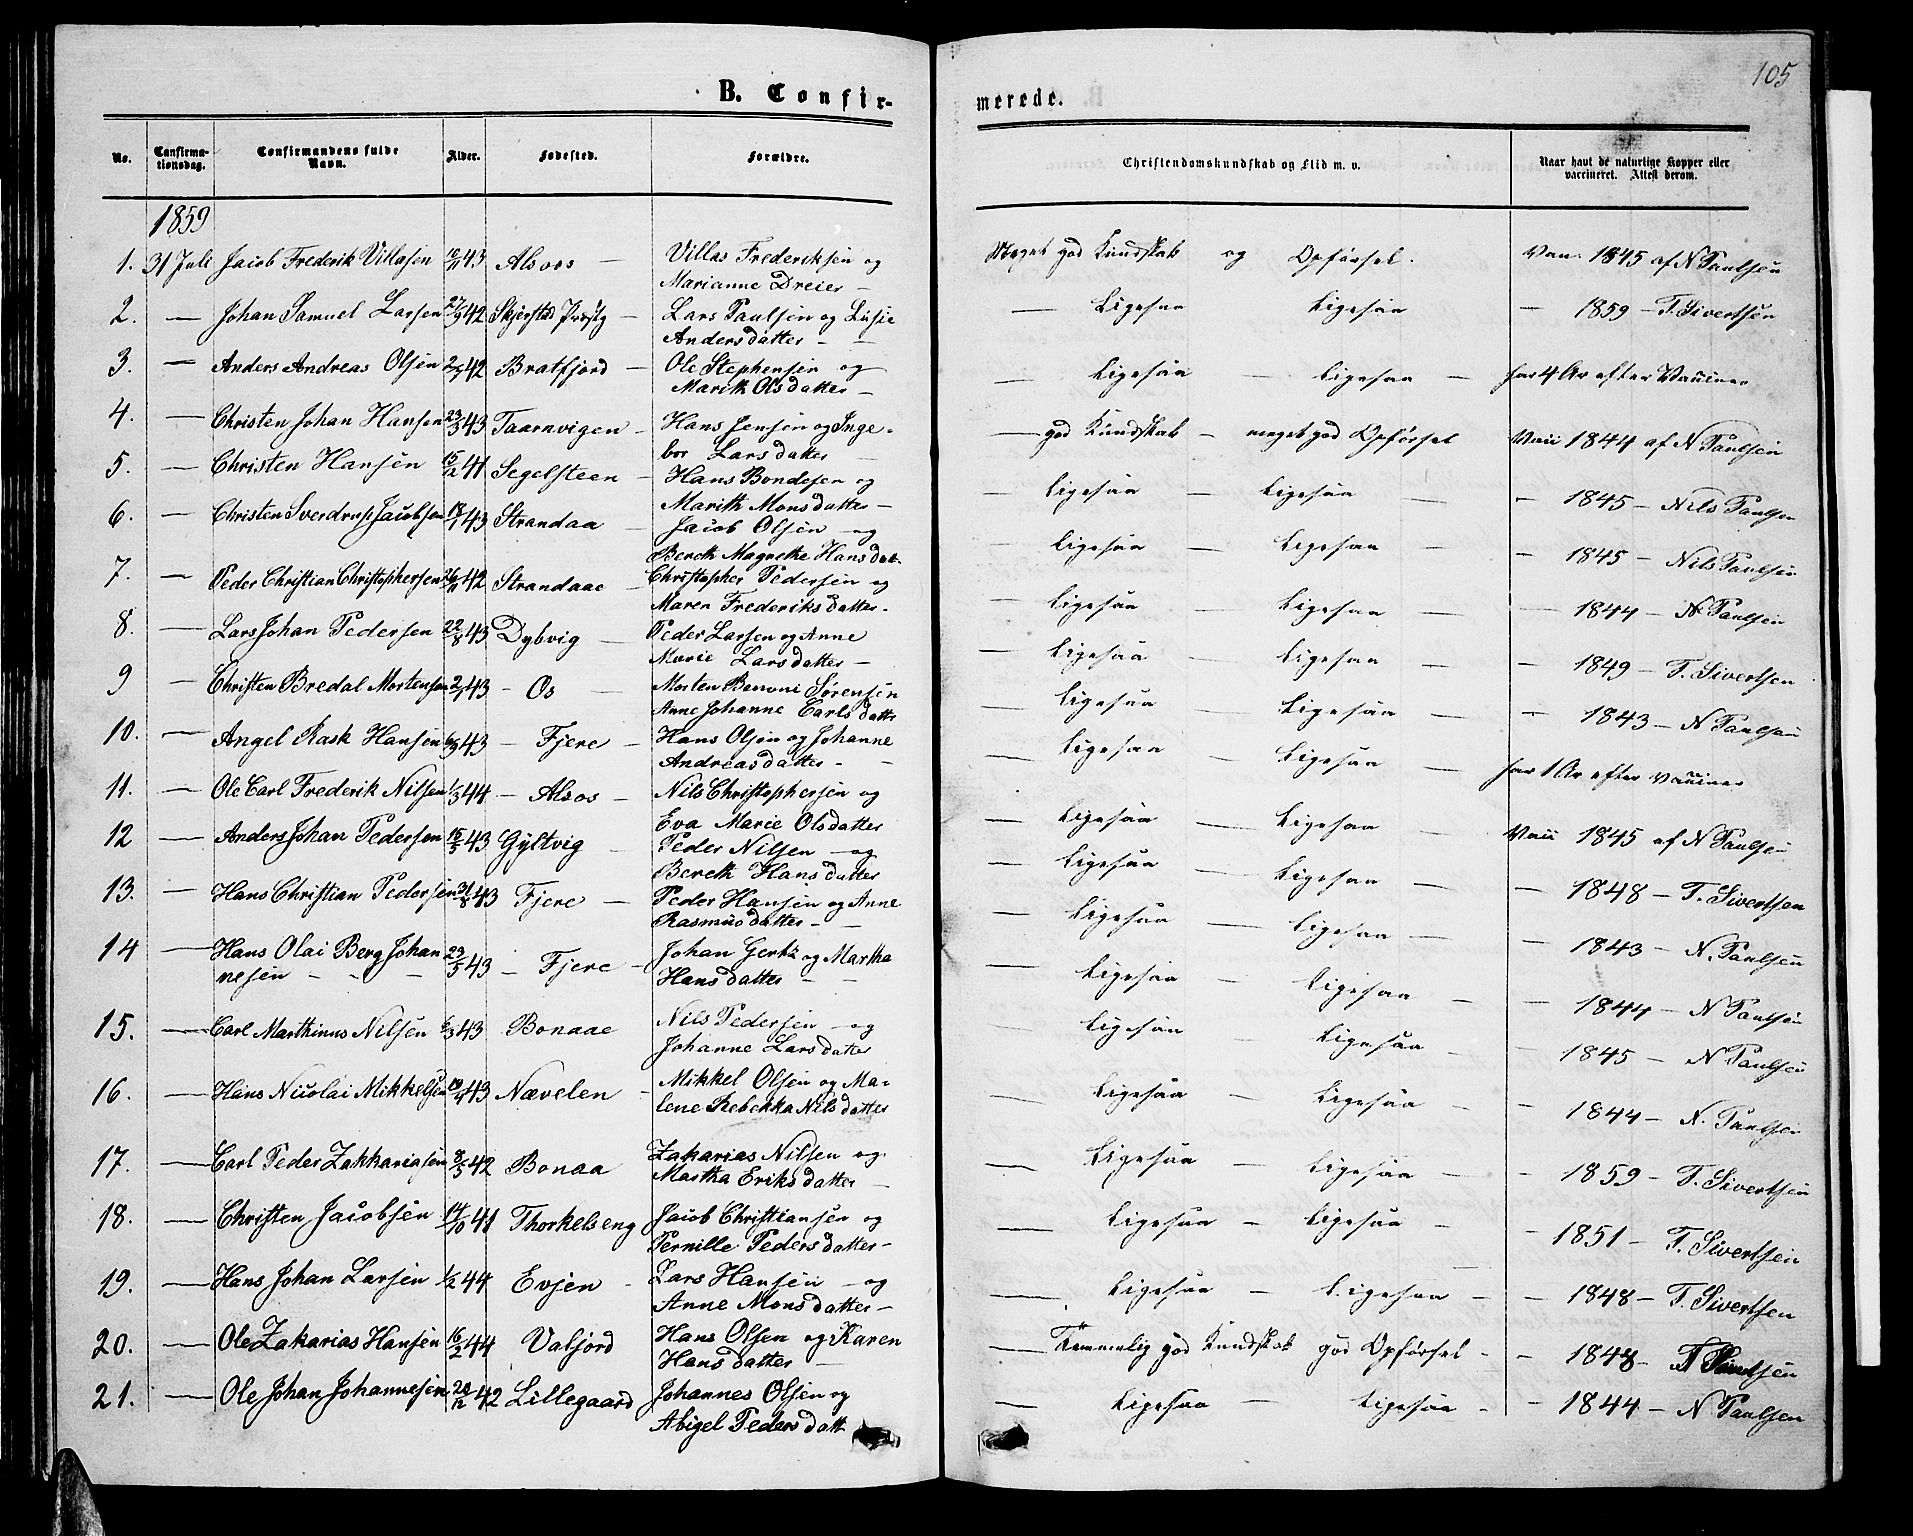 105
B. Confir-
merede.
No.
Confirma-
tionsdag.
Confirmandens fulde
Navn.
Alder.
Fødested.
Forældre.
Christendomskundskab og Flid m. v.
Naar havt de naturlige Kopper eller
vaccineret. Attest derom.
1859
1. 31 Juli Jacob Frederik Villasen 43 Alsoos — Villas Frederiksen og
Marianne Dreier —
Meget god Kundskab og Opførsel. Vacc. 1845 af N Paulsen
2. — Johan Samuel Larsen 27/9 42 Skjerstad Præstg — Lars Paulsen og Lusie
Andersdatter — —
— Ligesaa Ligesaa — 1859 — T. Sivertsen
3. — Anders Andreas Olsen 42 Bratfjord — Ole Stephensen og
Marith Olsdatter —
— Ligesaa — Ligesaa — for 4 Ar efter Vaccines
4. — Christen Johan Hansen 23/3 43 Taarnvigen — Hans Jensen og Inge-
bor Larsdatter —
— god Kundskab — meget god Opførsel Vacc 1844 af N Paulsen
5. — Christen Hansen 15/2 41 Segelsteen — Hans Bondesen og
Marith Monsdatter —
— Ligesaa — Ligesaa — — 1845 — Nils Paulsen
6. — Christen Sverdrup Jacobsen 18/1 43 Strandaa — Jacob Olsen — og
Bereth Magrethe Hansdat.
— Ligesaa — Ligesaa — — 1845 — Nils Paulsen
7. — Peder Christian Christophersen 26/11 42 Strandaae — Christopher Pedersen og
Maren Frederiksdatter.
— Ligesaa — Ligesaa — — 1844 — N. Paulsen
8. — Lars Johan Pedersen 22/8 43 Dybvig — Peder Larsen og Anne
Marie Larsdatter —
— Ligesaa — Ligesaa — — 1849 — T. Sivertsen
9 — Christen Bredal Mortensen 43 — Os — Morten Benoni Sørensen
Anne Johanne Carlsdatter
— Ligesaa — Ligesaa — — 1843 — N Paulsen
10. — Angel Rask Hansen 6/9 43 — Fjere — Hans Olsen og Johanne
Andreasdatter — —
— Ligesaa — Ligesaa — for 1 Ar efter Vaccines
11. — Ole Carl Frederik Nilsen 1/3 44 — Alsos — Nils Christophersen og
Eva Marie Olsdatter
— Ligesaa — Ligesaa — Vacc 1845 af N Paulsen
12 — Anders Johan Pedersen 15/5 43 Gyltvig — Peder Nilsen — og
Bereth Hansdatter
— Ligesaa — Ligesaa — — 1848 — T. Sivertsen
13. — Hans Christian Pedersen 31/8 43 Fjere — Peder Hansen og Anne
Rasmusdatter — —
— Ligesaa — Ligesaa — — 1843 — N. Paulsen
14 — Hans Olai Berg Johan 23/5 43 — Fjere — Johan Gertz og Martha
nesen — — Hansdatter — —
— Ligesaa — Ligesaa — — 1844 — N Paulsen
15. — Carl Marthinus Nilsen 6/3 43 Bonaae Nils Pedersen — og
Johanne Larsdatter
— Ligesaa — Ligesaa — — 1845 — N Paulsen
16. — Hans Nicolai Mikkelsen 43 Nævelen — Mikkel Olsen og Ma-
lene Rebekka Nilsdatter
— Ligesaa — Ligesaa — — 1844 — N. Paulsen
17. — Carl Peder Zakkariasen 8/5 42 Bonaa Zakarias Nilsen og
Martha Eriksdatter —
— Ligesaa — Ligesaa — — 1859 — T. Sivertsen
18. — Christen Jacobsen 14/10 41 Thorkelseng Jacob Christiansen og
Pernille Pedersdatter —
— Ligesaa — Ligesaa — — 1851 — T. Sivertsen
19. — Hans Johan Larsen 1/2 44 Evjen — Lars Hansen — og
Anne Monsdatter —
— Ligesaa — Ligesaa — — 1848 — T. Sivertsen
20. — Ole Zakarias Hansen 16/2 44 Valjord Hans Olsen og Karen
Hansdatter —
— Temmelig god Kundskab god Opførsel — — 1848 — Paulsen
21. — Ole Johan Johannesen 20/12 42 Lillegaard Johannes Olsen og
Abigel Pedersdatt
— Ligesaa — Ligesaa — — 1844 — N Paulsen